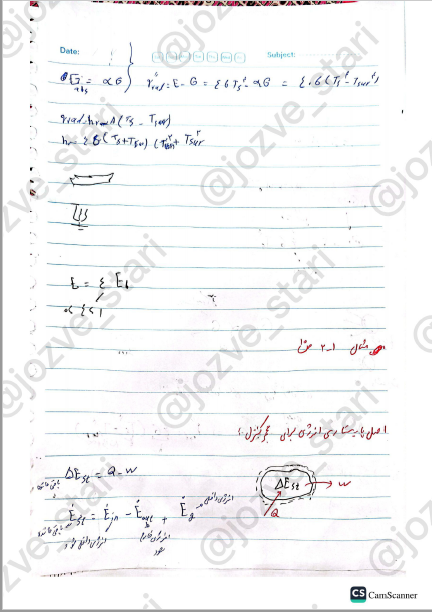 Date:
Subject:
G abs = αG } q″rad = E - G = εσTs⁴ - αG = ε.σ(Ts⁴ - Tsur⁴)
qrad = hr A (Ts - Tsur)
hr = εσ(Ts + Tsur)(Ts² + Tsur²
E = ε Eb
0 ≤ ε ≤ 1
مثال ۱-۲
اصل پایستاری انرژی برای حجم کنترل:
ΔEst = Q - W
ΔEst → W
Q
Ėst = Ėin - Ėout + Ėg
@jozve_stari
CS CamScanner